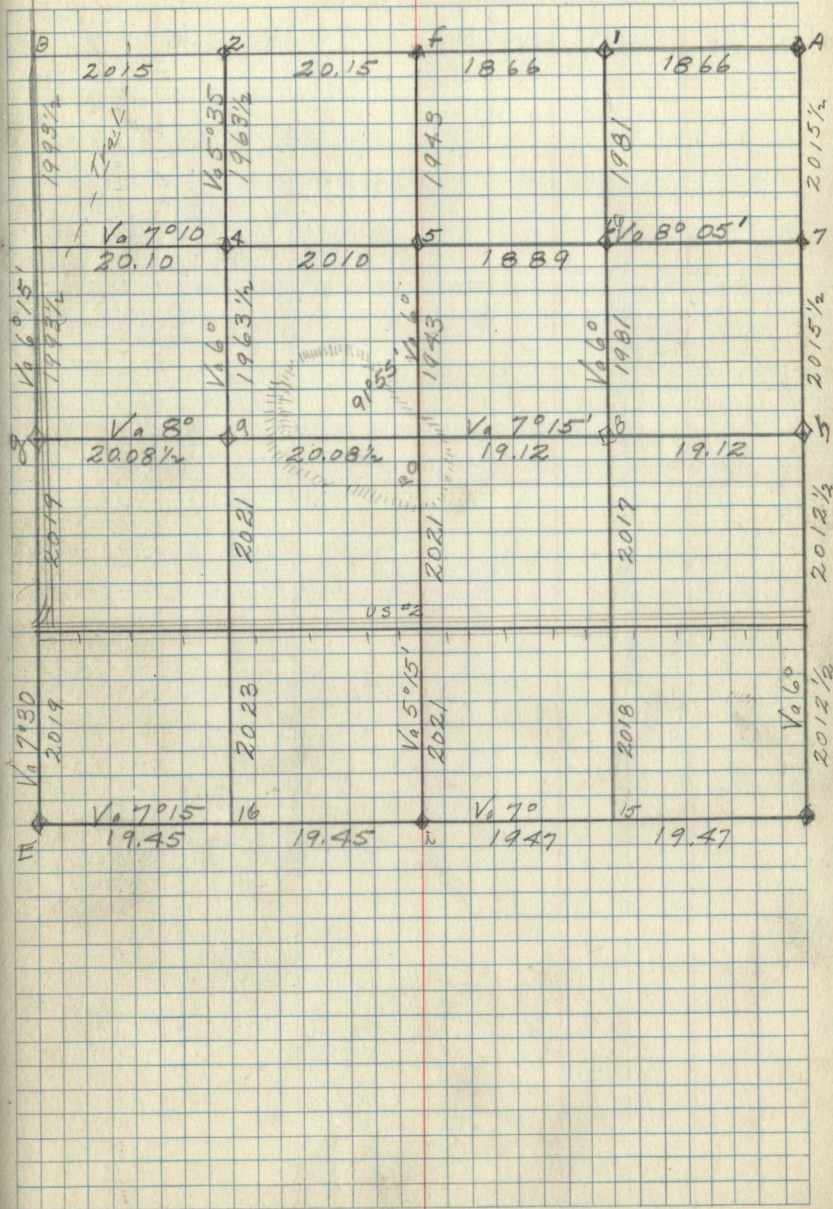 B 2 f 1 A
2015 20.15 1866 1866
1993½ Va 5°35 1963½ 1943 1981 2015½
Trail
Va 7°10 4 5 6 Va 8° 05' 7
20.10 2010 1889
Va 6°15' 1993½ Va 6° 1963½ 91°55' Va 6° 1943 Va 6° 1981 2015½
g Va 8° 9 Va 7°15' 8 5
20.08½ 20.08½ 19.12 19.12
90
2019 2021 2021 2017 2012½
US #2
Va 7°30 2019 2023 Va 5°15' 2021 2018 Va 6° 2012½
Va 7°15 16 2 Va 7° 15
19.45 19.45 1947 19.47